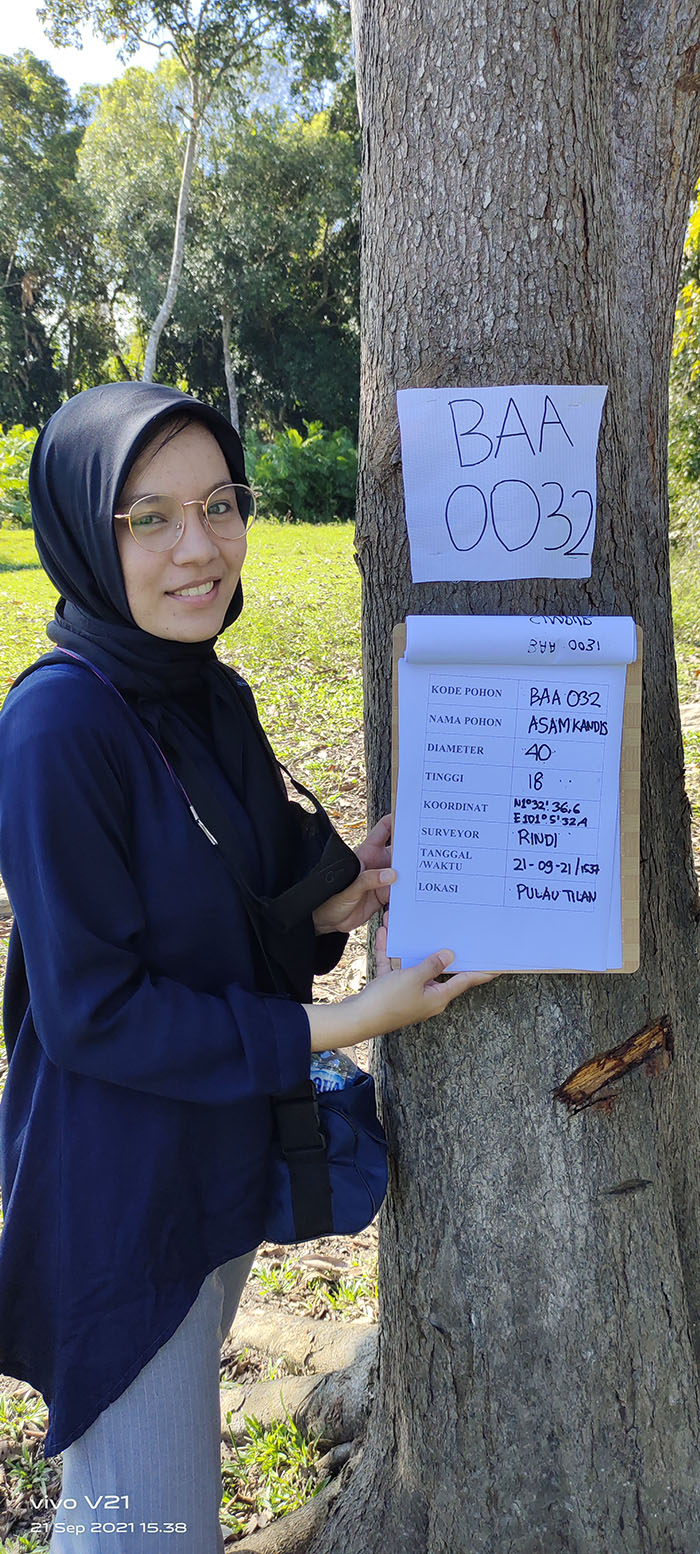 BAA
0032
BAA 0031
KODE POHON BAA 032
NAMA POHON ASAMKANDIS
DIAMETER 40
TINGGI 18
KOORDINAT N1°32'.36,6
E101°5'32,4
SURVEYOR RINDI
TANGGAL
/WAKTU 21-09-21/1537
LOKASI PULAU TILAN
vivo V21
21 Sep 2021 15.38